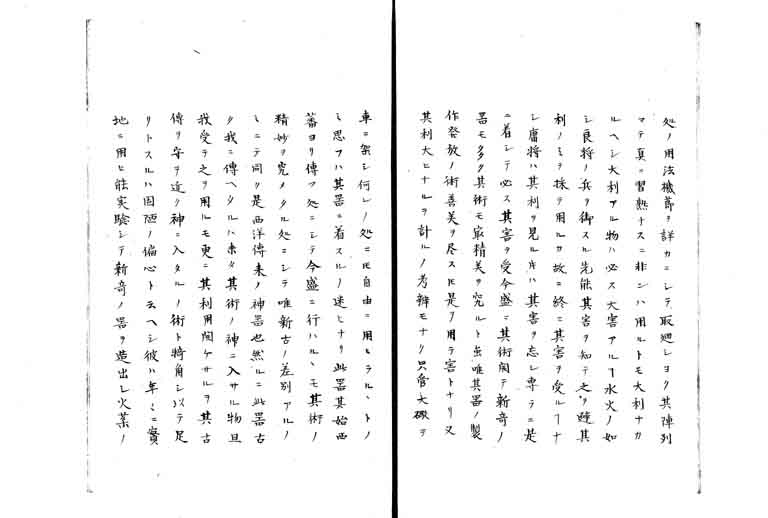 処ノ用法機節ヲ詳カニシテ取廻シヨク其陣列
マテ真ニ習熟ナスニ非レハ用ルトモ大利ナカ
ルヘシ大利アル物ハ必ス大害アルヿ水火ノ如
シ良将ノ兵ヲ御スル先能其害ヲ知テ之ヲ避其
利ノミヲ採テ用ルカ故ニ終ニ其害ヲ受ルヿナ
シ庸将ハ其利ヲ見ル片ハ其害ヲ忘レ専ラニ是
ニ着シテ必ス其害ヲ受今盛ニ其術開テ新奇ノ
器モ多ク其術モ最精美ヲ究ルト虽唯其器ノ製
作発放ノ術善美ヲ尽スモ是ヲ用テ害トナリ又
其利大ヒナルヲ計ルノ考辨モナク只管大礮ヲ
車ニ架シ何レノ処ニモ自由ニ用ヒラルヽトノ
ミ思フハ其器ニ着スルノ迷ヒナリ此器其始西
蕃ヨリ傳フ処ニシテ今盛ニ行ハルヽモ其術ノ
精妙ヲ究メタル処ニシテ唯新古ノ差別アルノ
ミニテ同ク是西洋傳来ノ神器也然ルニ此器古
ク我ニ傳ヘタルハ未タ其術ノ神ニ入サル物旦
我受テ之ヲ用ルモ更ニ其利用闕ケサルヲ其古
傳ヲ守ヲ近ク神ニ入タルノ術ト犄角シ以テ足
リトスルハ固陋ノ偏心ト云ヘシ彼ハ年々ニ實
地ニ用ヒ能実験シテ新奇ノ器ヲ造出シ火薬ノ